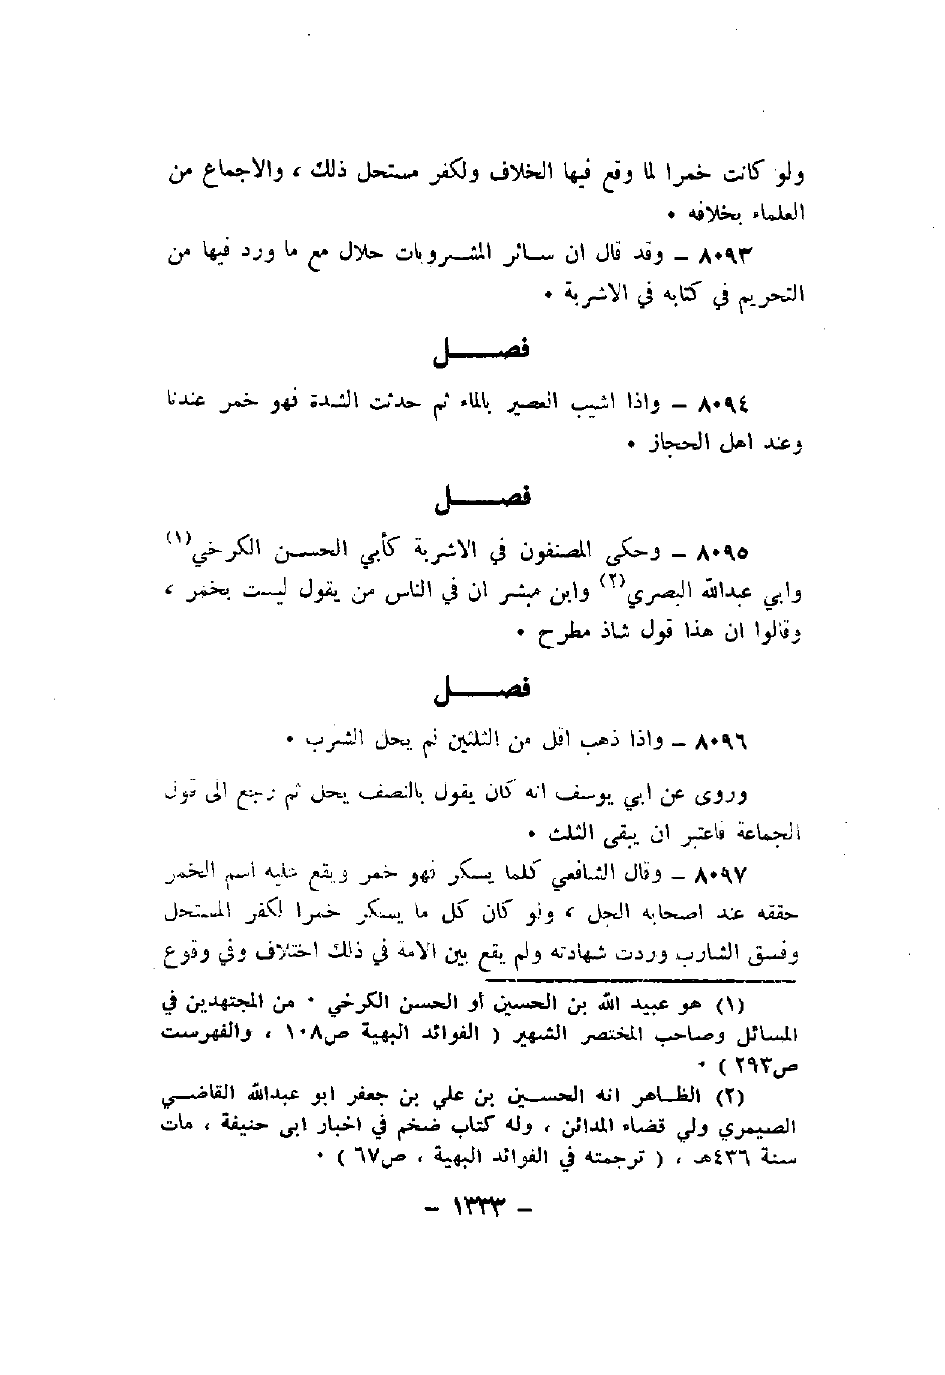 ولو كانت خمرا لما وقع فيها الخلاف ولكفر مستحل ذلك ، والاجماع من
العلماء بخلافه ٠
٨٠٩٣ – وقد قال ان سائر المشروبات حلال مع ما ورد فيها من
التحريم في كتابه في الاشربة ٠
فصل
٨٠٩٤ – واذا اشيب العصير بالماء ثم حدثت الشدة فهو خمر عندنا
وعند اهل الحجاز ٠
فصل
٨٠٩٥ – وحكى المصنفون في الاشربة كأبي الحسن الكرخي(١)
وابي عبدالله البصري(٢) وابن مبشر ان في الناس من يقول ليست بخمر ،
وقالوا ان هذا قول شاذ مطرح ٠
فصل
٨٠٩٦ – واذا ذهب اقل من الثلثين لم يحل الشرب ٠
وروى عن ابي يوسف انه كان يقول بالنصف يحل ثم رجع الى قول
الجماعة فاعتبر ان يبقى الثلث ٠
٨٠٩٧ – وقال الشافعي كلما يسكر فهو خمر ويقع عليه اسم الخمر
حققه عند اصحابه الجل ، ولو كان كل ما يسكر خمرا لكفر المستحل
وفسق الشارب وردت شهادته ولم يقع بين الامة في ذلك اختلاف وفي وقوع
(١) هو عبيد الله بن الحسين أو الحسن الكرخي ٠ من المجتهدين في
المسائل وصاحب المختصر الشهير ( الفوائد البهية ص١٠٨ ، والفهرست
ص٢٩٣ ) ٠
(٢) الظاهر انه الحسين بن علي بن جعفر ابو عبدالله القاضي
الصيمري ولي قضاء المدائن ، وله كتاب ضخم في اخبار ابى حنيفة ، مات
سنة ٤٣٦هـ ، ( ترجمته في الفوائد البهية ، ص٦٧ ) ٠
– ١٣٣٣ –